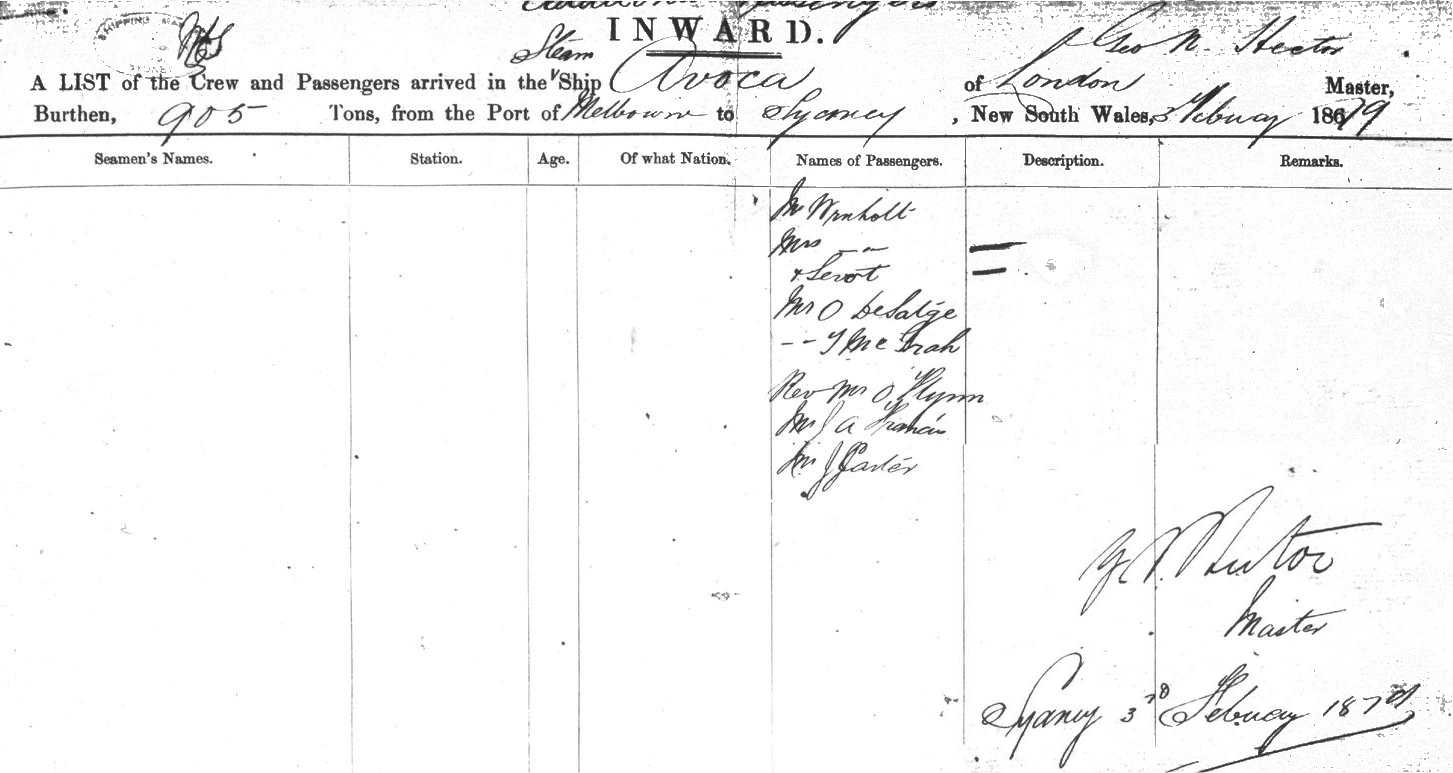 Passengers
INWARD.
Steam
Geo N. Hector
A LIST of the Crew and Passengers arrived in the Ship Avoca of London Master,
Burthen, 905 Tons, from the Port of Melbourne to Sydney, New South Wales, 3 Febuary 1879
Seamen's Names. Station. Age. Of what Nation. Names of Passengers. Description. Remarks.
Mr Wrnholt
Mrs — "
+ Servt
Mr O DeSatgé
-- T McIrah
Rev Mr O'Flynn
Mr J A Francis
Mr J Carter
Hector
Master
Sydney 3rd Febuary 1879